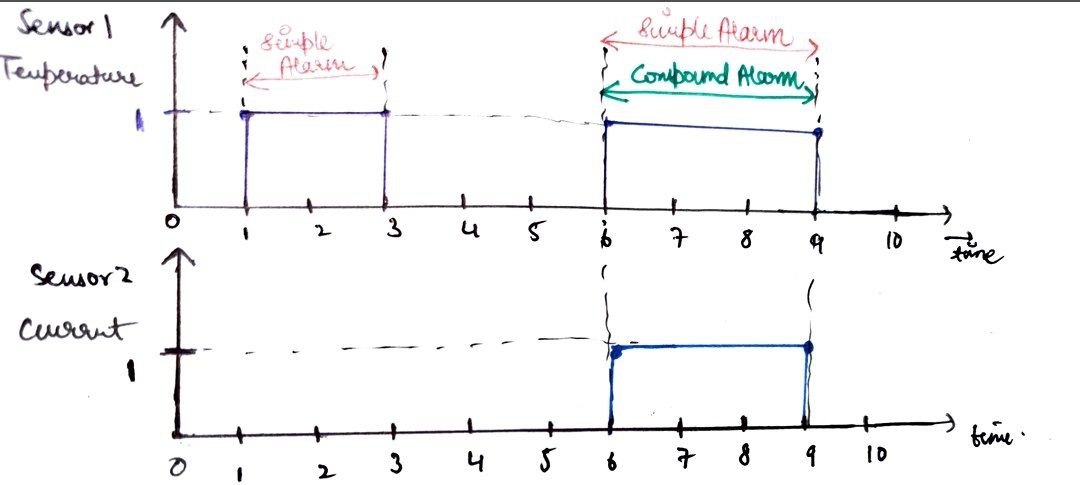 Sensor 1
Temperature
Simple
Alarm
Simple Alarm
Compound Alarm
1
0 1 2 3 4 5 6 7 8 9 10
time
Sensor 2
Current
1
0 1 2 3 4 5 6 7 8 9 10
time.